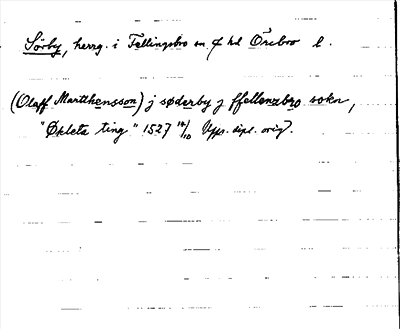 Sörby, herrg. i Fellingsbro sn. o hd Örebro l.
(Olaff Martthensson) j søderby j ffellenzbro sokn,
"Økleta ting" 1527 14/10 Upps. dipl. orig.